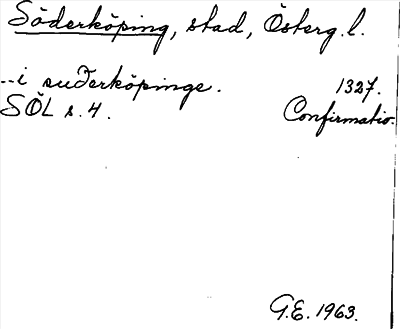 Söderköping, stad, Österg.l.
--i suðerköpinge. 1327.
SÖL s.4. Confirmatio.
G.E. 1963.